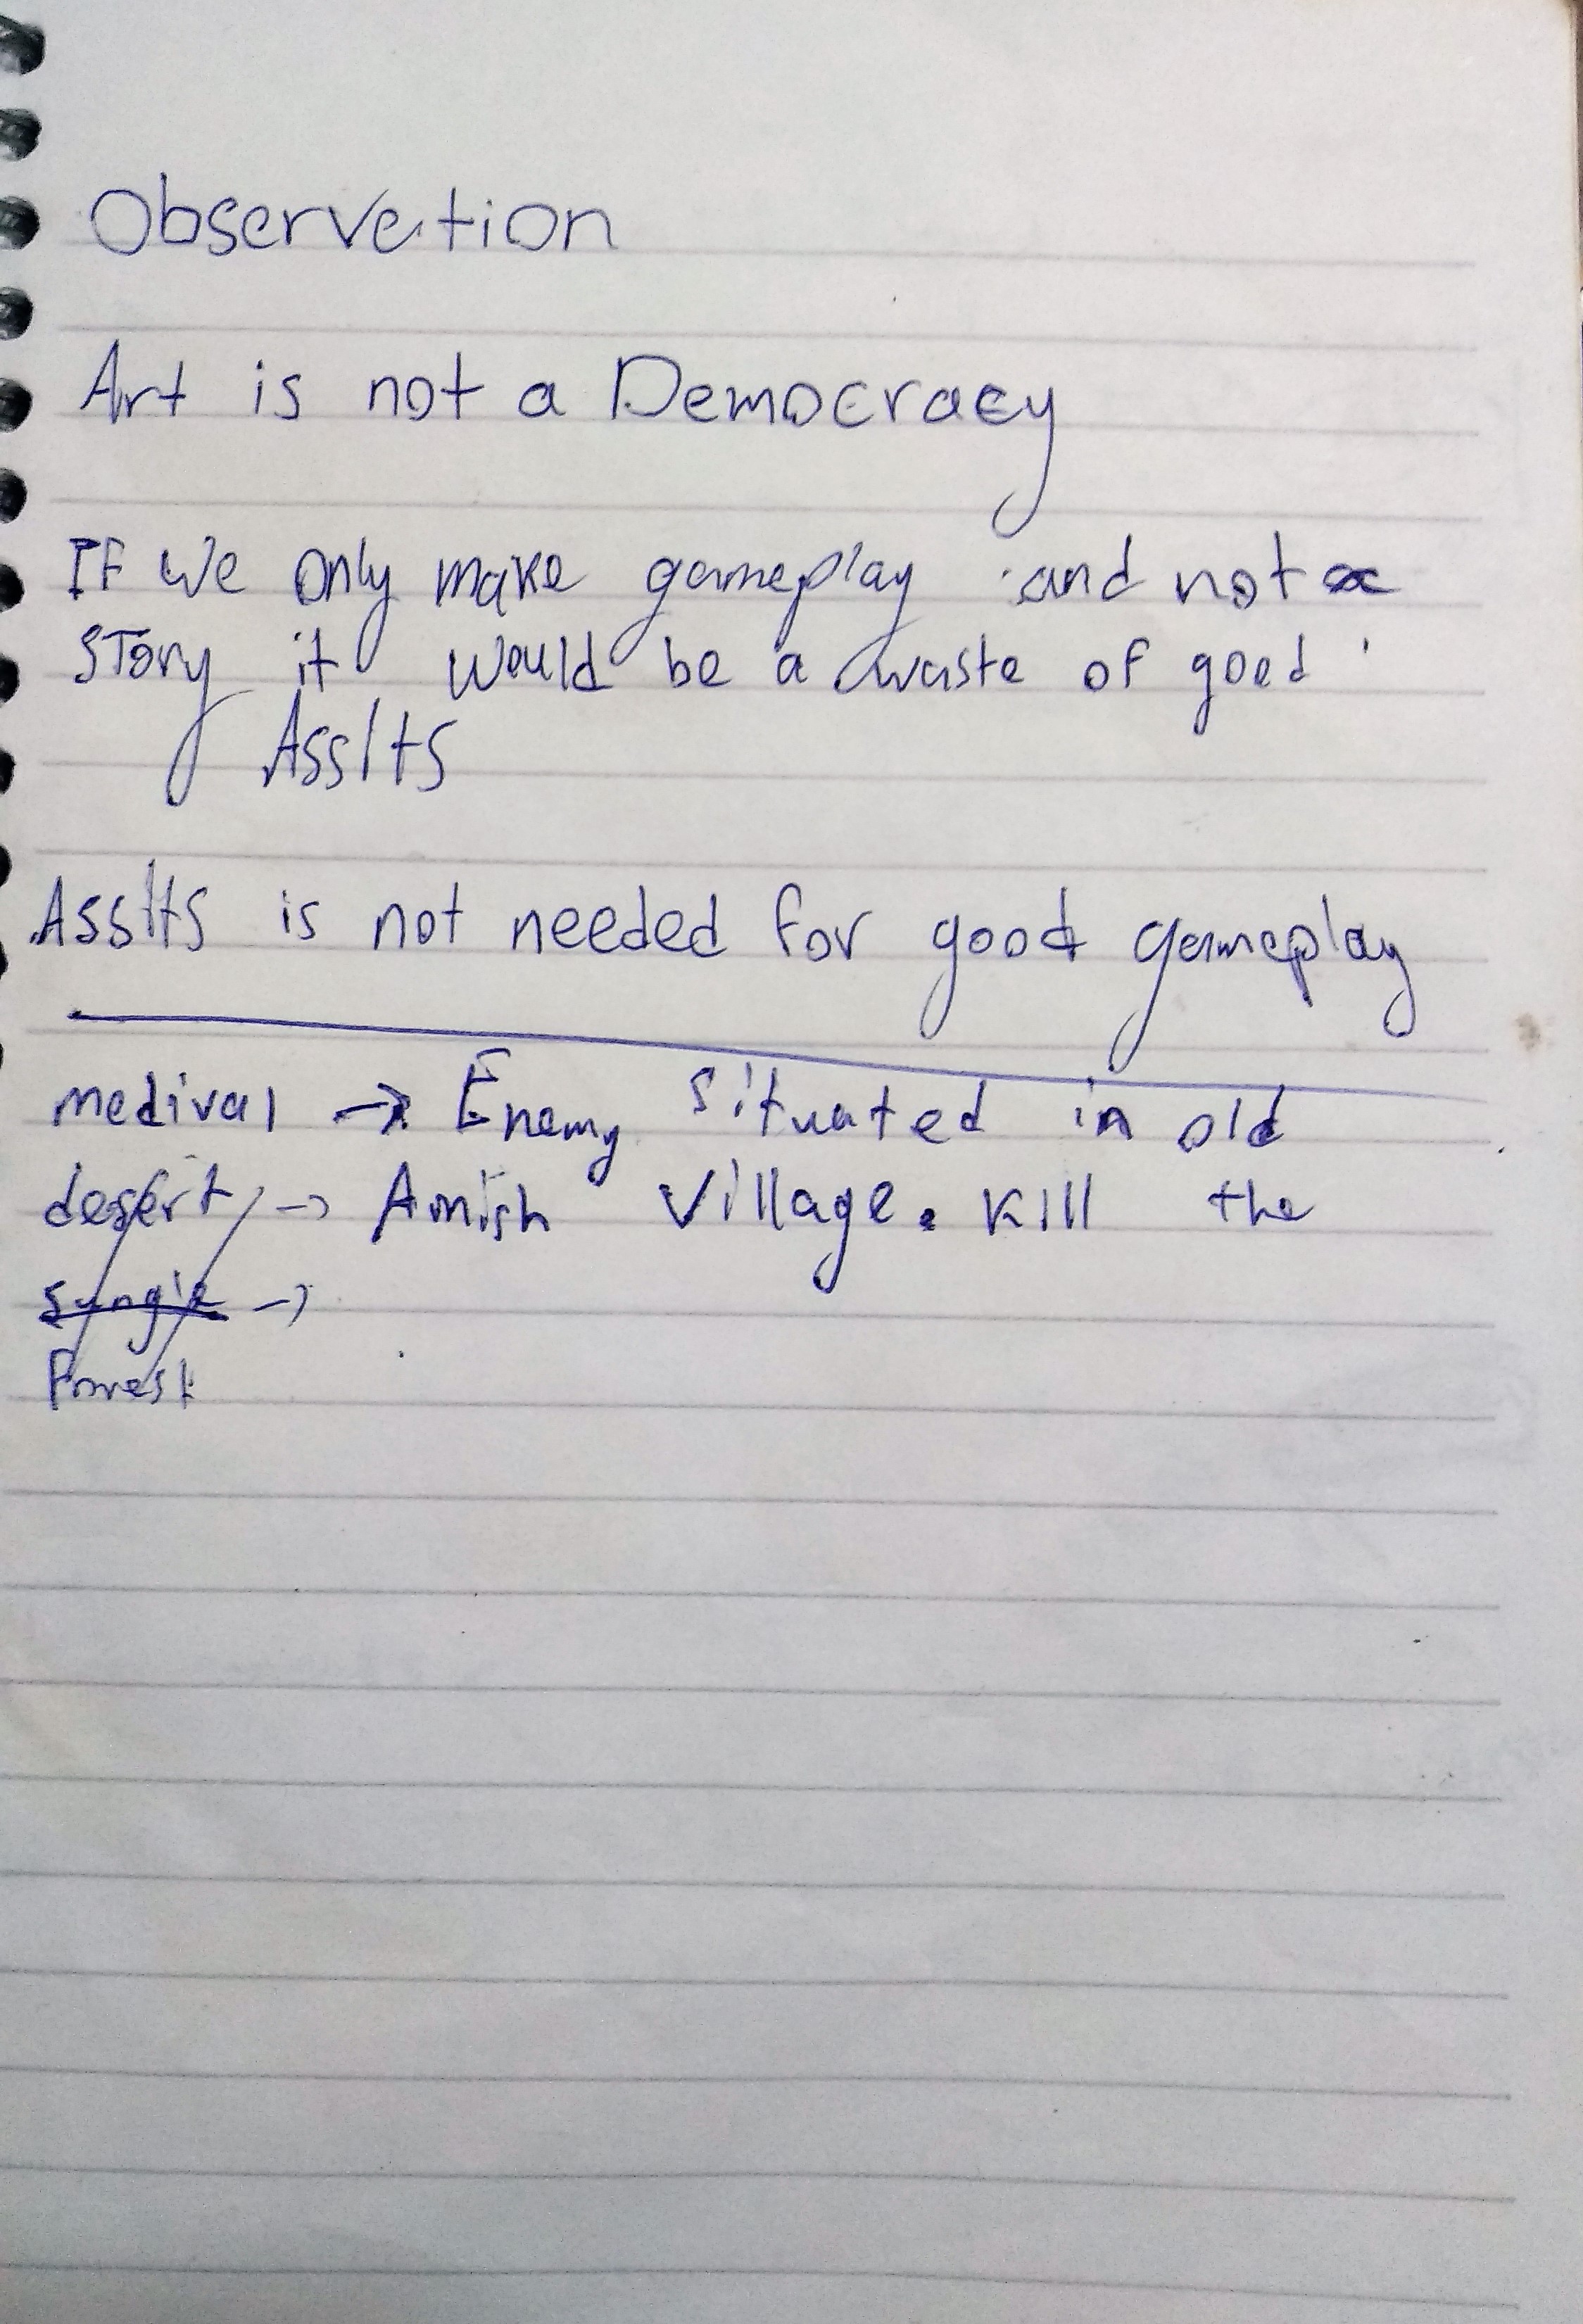 Observation
Art is not a Democracy
If we only make gameplay and not a
story it would be a waste of good
Assits
Assits is not needed for good gameplay
medival → Enemy situated in old
desert → Amish village. Kill the
→
Forest